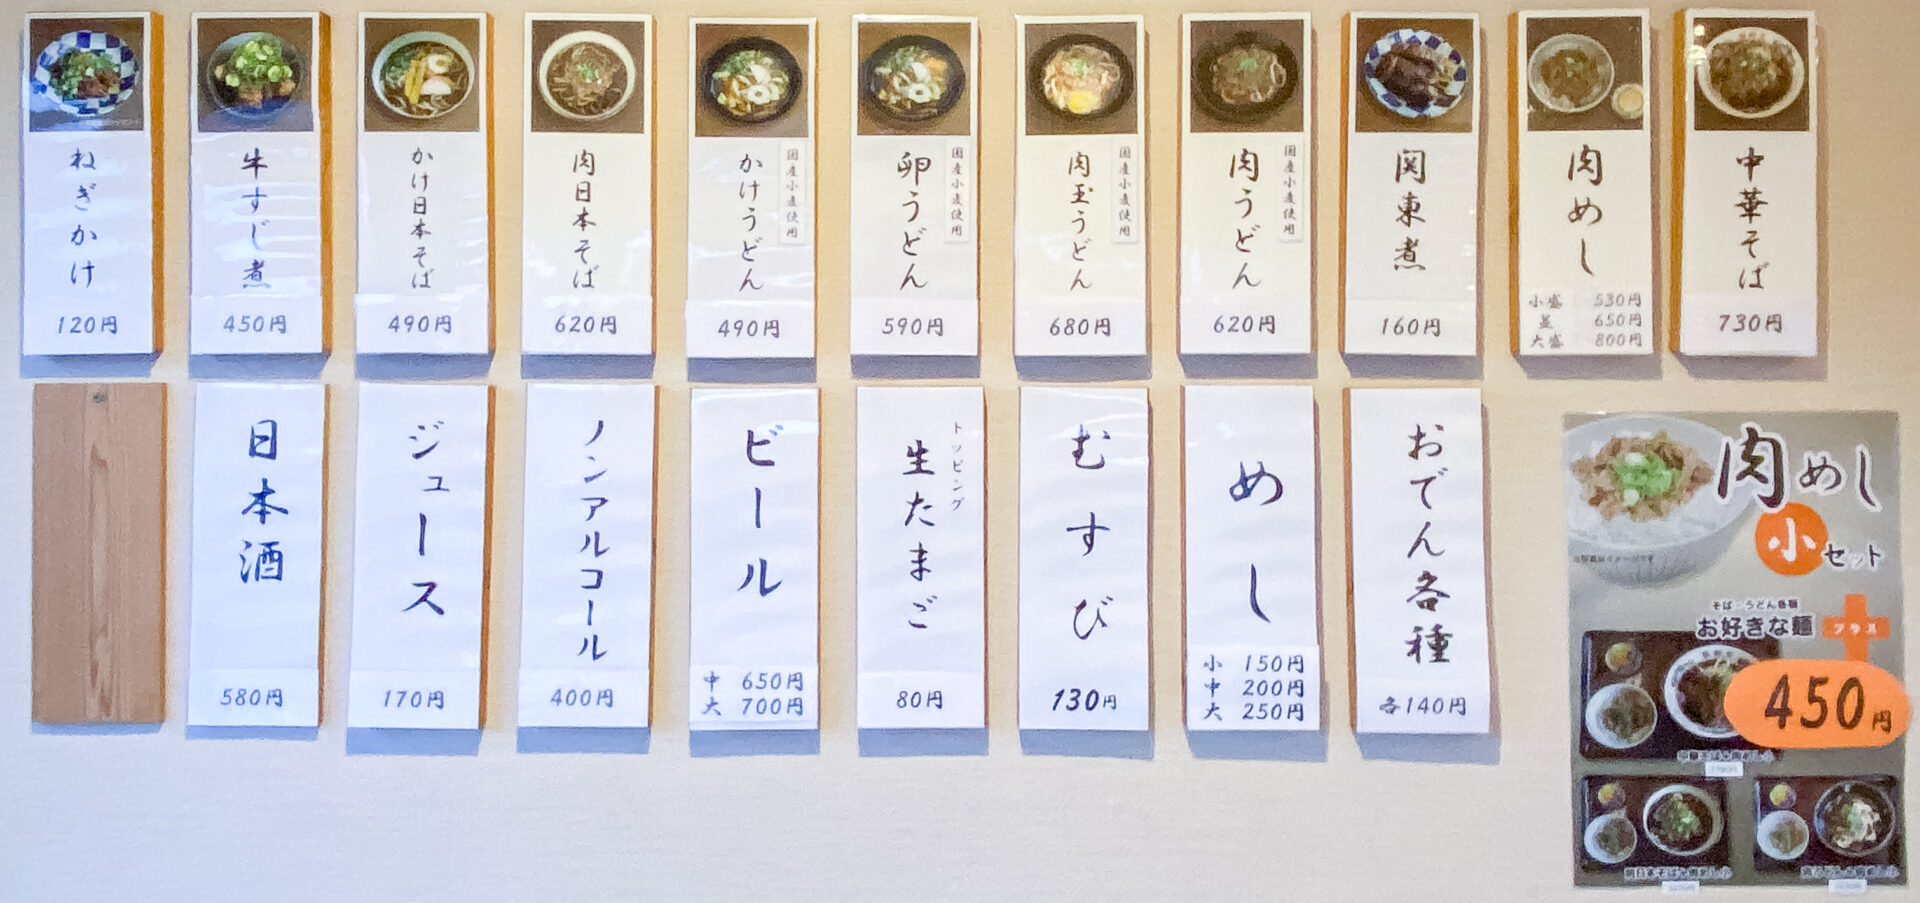 中華そば
730円
肉めし
小盛 530円
並 650円
大盛 800円
関東煮
160円
国産小麦使用
肉うどん
620円
国産小麦使用
肉玉うどん
680円
国産小麦使用
卵うどん
590円
国産小麦使用
かけうどん
490円
肉日本そば
620円
かけ日本そば
490円
牛すじ煮
450円
ねぎかけ
120円
おでん各種
各140円
めし
小 150円
中 200円
大 250円
むすび
130円
トッピング
生たまご
80円
ビール
中 650円
大 700円
ノンアルコール
400円
ジュース
170円
日本酒
580円
肉めし
小セット
そば・うどん各種
お好きな麺
プラス
450円
中華そば+肉めし小